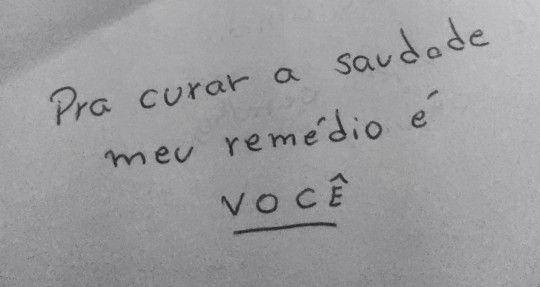 Pra curar a saudade
meu remédio é
VOCÊ